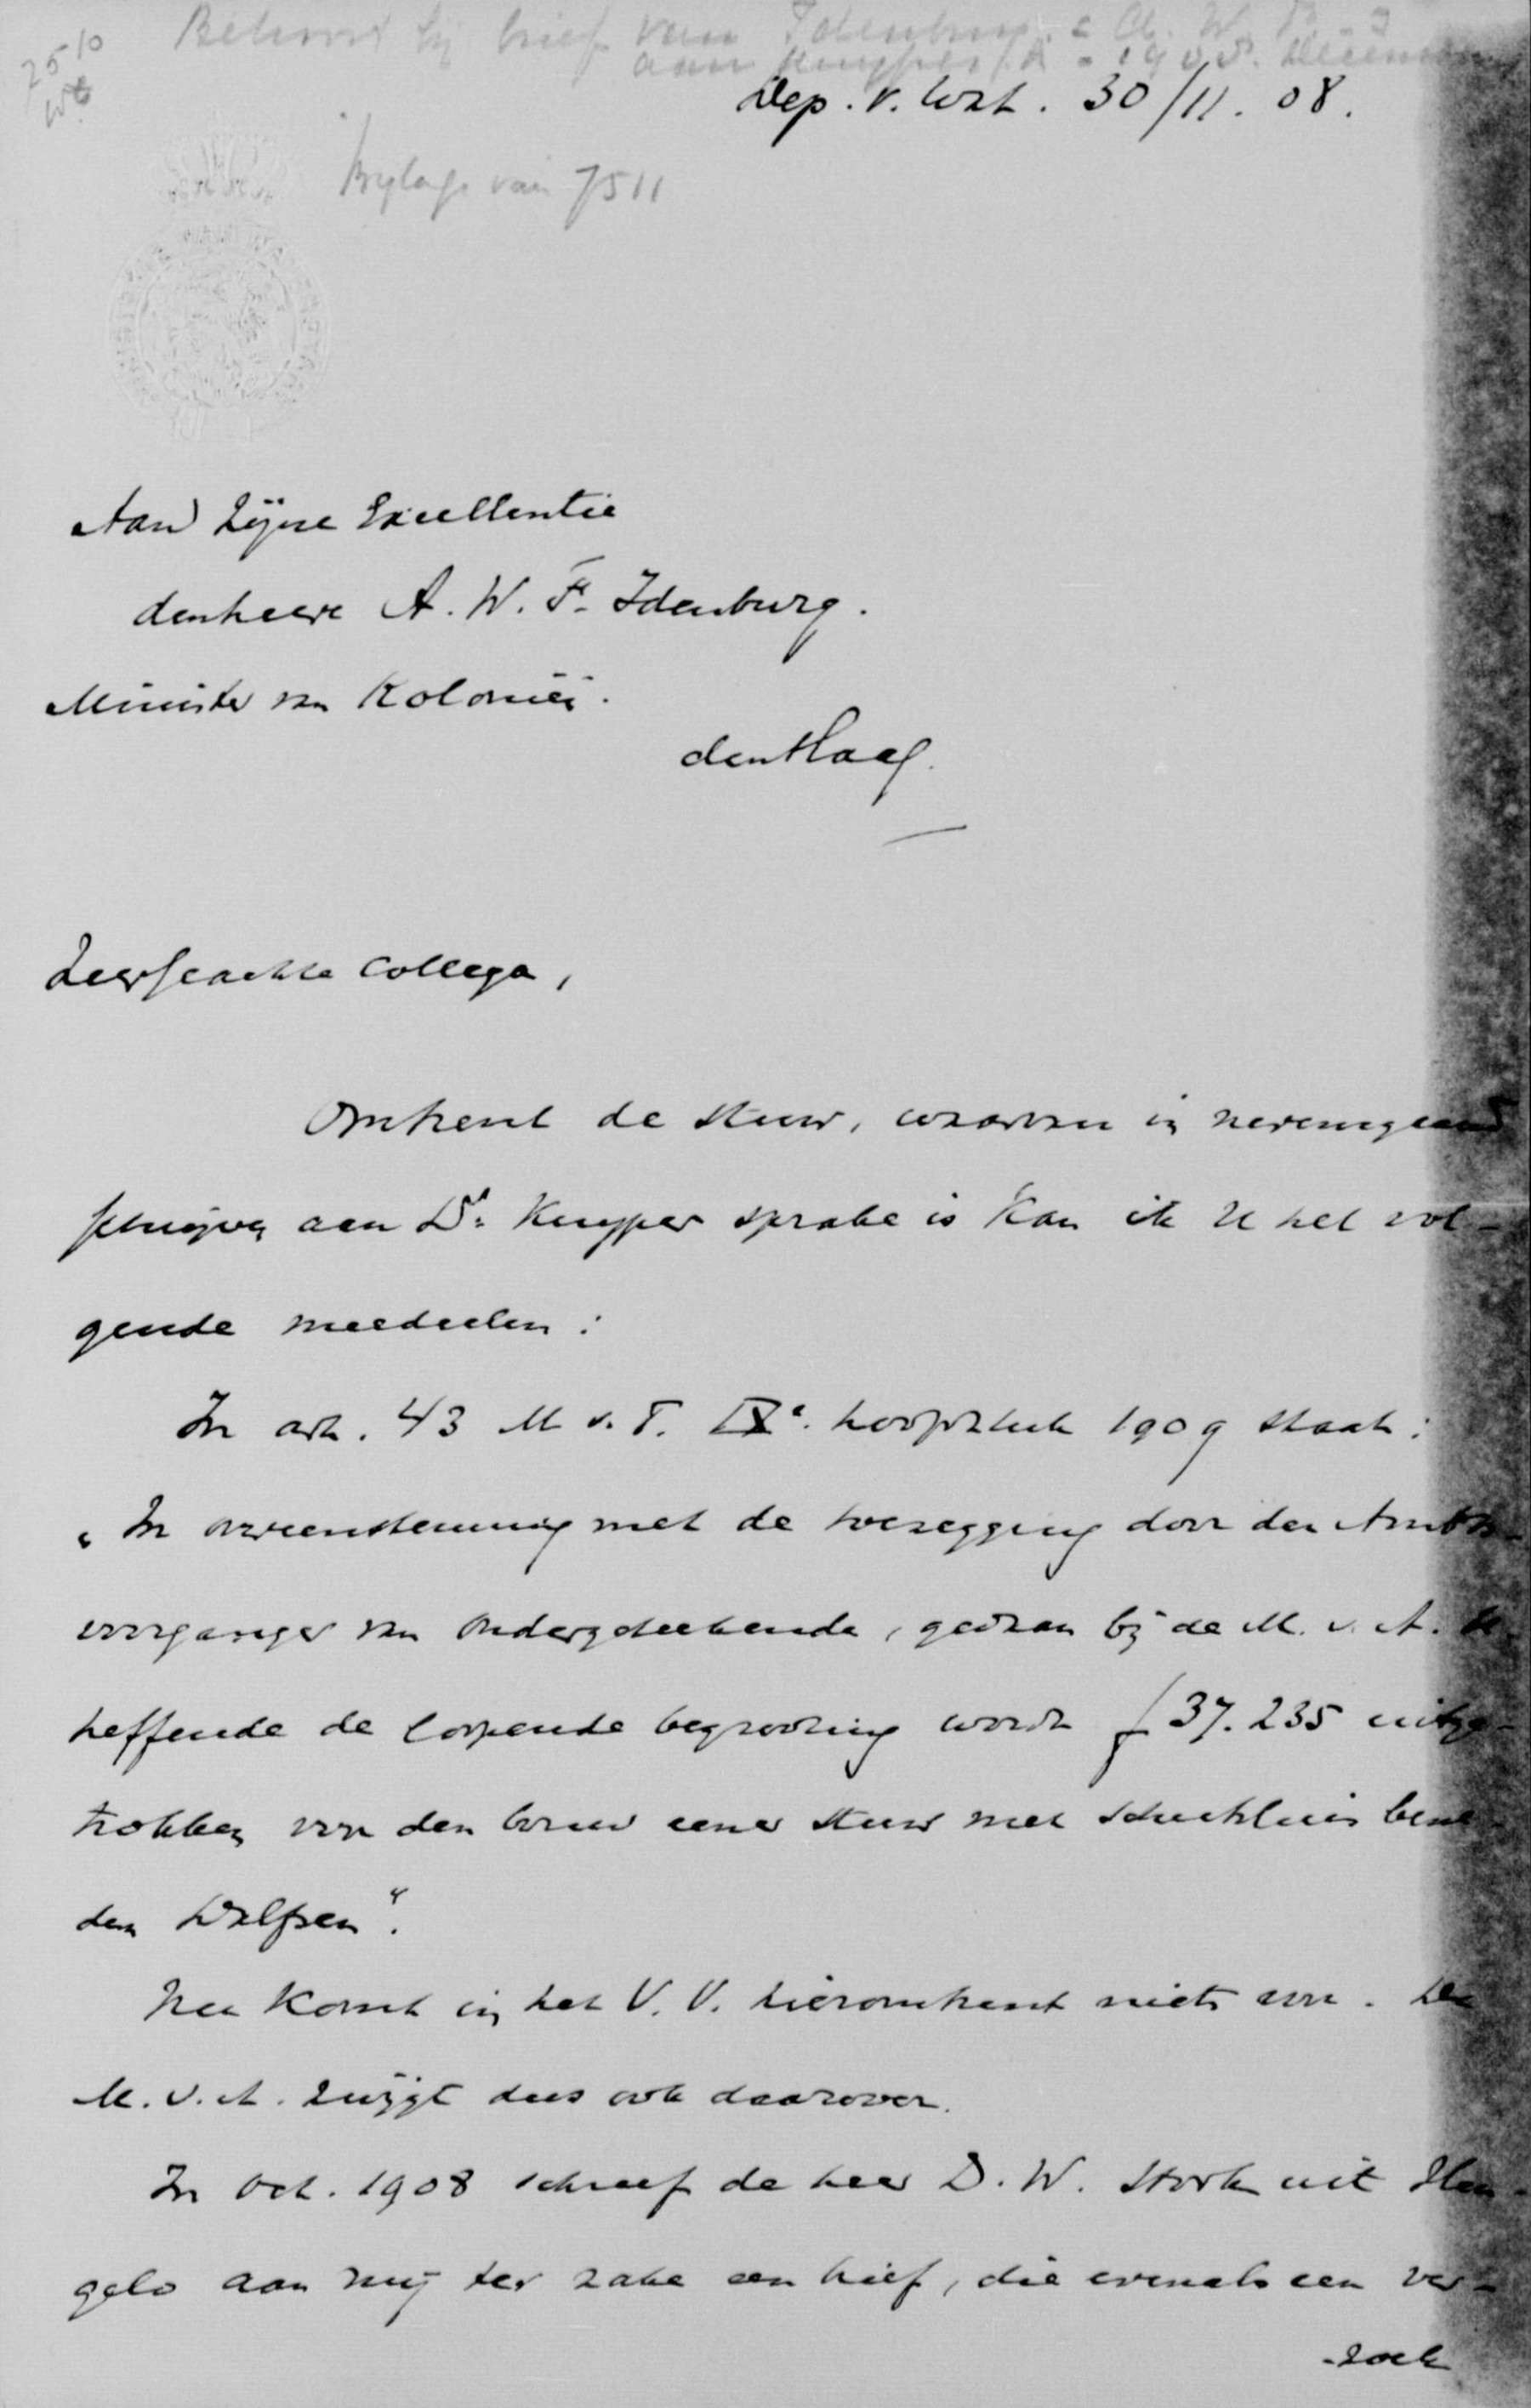 Behoort bij brief van Idenburg, A. W. F.
aan Kuyper, A. - 1908. December
7510
Dep. v. Wat. 30/11. 08.
Bylage van 7511
Aan Zijne Excellentie
den heere A. W. F. Idenburg.
Minister van Koloniën.
den Haag.
Zeergeachte Collega,
Omtrent de stuw, waarvan in nevensgaand
schrijven aan Dr. Kuyper sprake is kan ik U het vol-
gende meedeelen:
In art. 43 M v. T. IXe. hoofdstuk 1909 staat:
"In overeenstemming met de toezegging door den Ambts-
voorganger van ondergeteekende, gedaan bij de M. v. A. be-
treffende de loopende begrooting wordt f 37.235 uitge-
trokken voor den bouw eener stuw met schutsluis bene-
den Dalfsen".
Nu komt in het V. V. hieromtrent niets voor. De
M. v. A. zwijgt dus ook daarover.
In Oct. 1908 schreef de heer D. W. Stork uit Hen-
gelo aan mij ter zake een brief, die evenals een ver-
-zoek